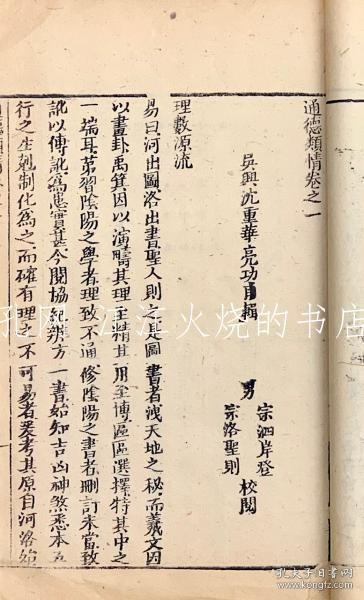 通德類情卷之一
吳興沈重華亮功甫輯
男
宗泗岸登
宗洛聖則
校閱
理數源流
易曰河出圖洛出書聖人則之是圖書者洩天地之秘而羲文因
以畫卦禹箕因以演疇其理至精其用至博區區選擇特其中之
一端耳第習陰陽之學者理致不通修陰陽之書者刪訂未當致
訛以傳訛爲患實甚今閱協紀辨方一書始知吉凶神煞悉本五
行之生剋制化爲之而確有理之不可易者爰考其原自河洛始
江涯火烧的书店
孔夫子旧书网